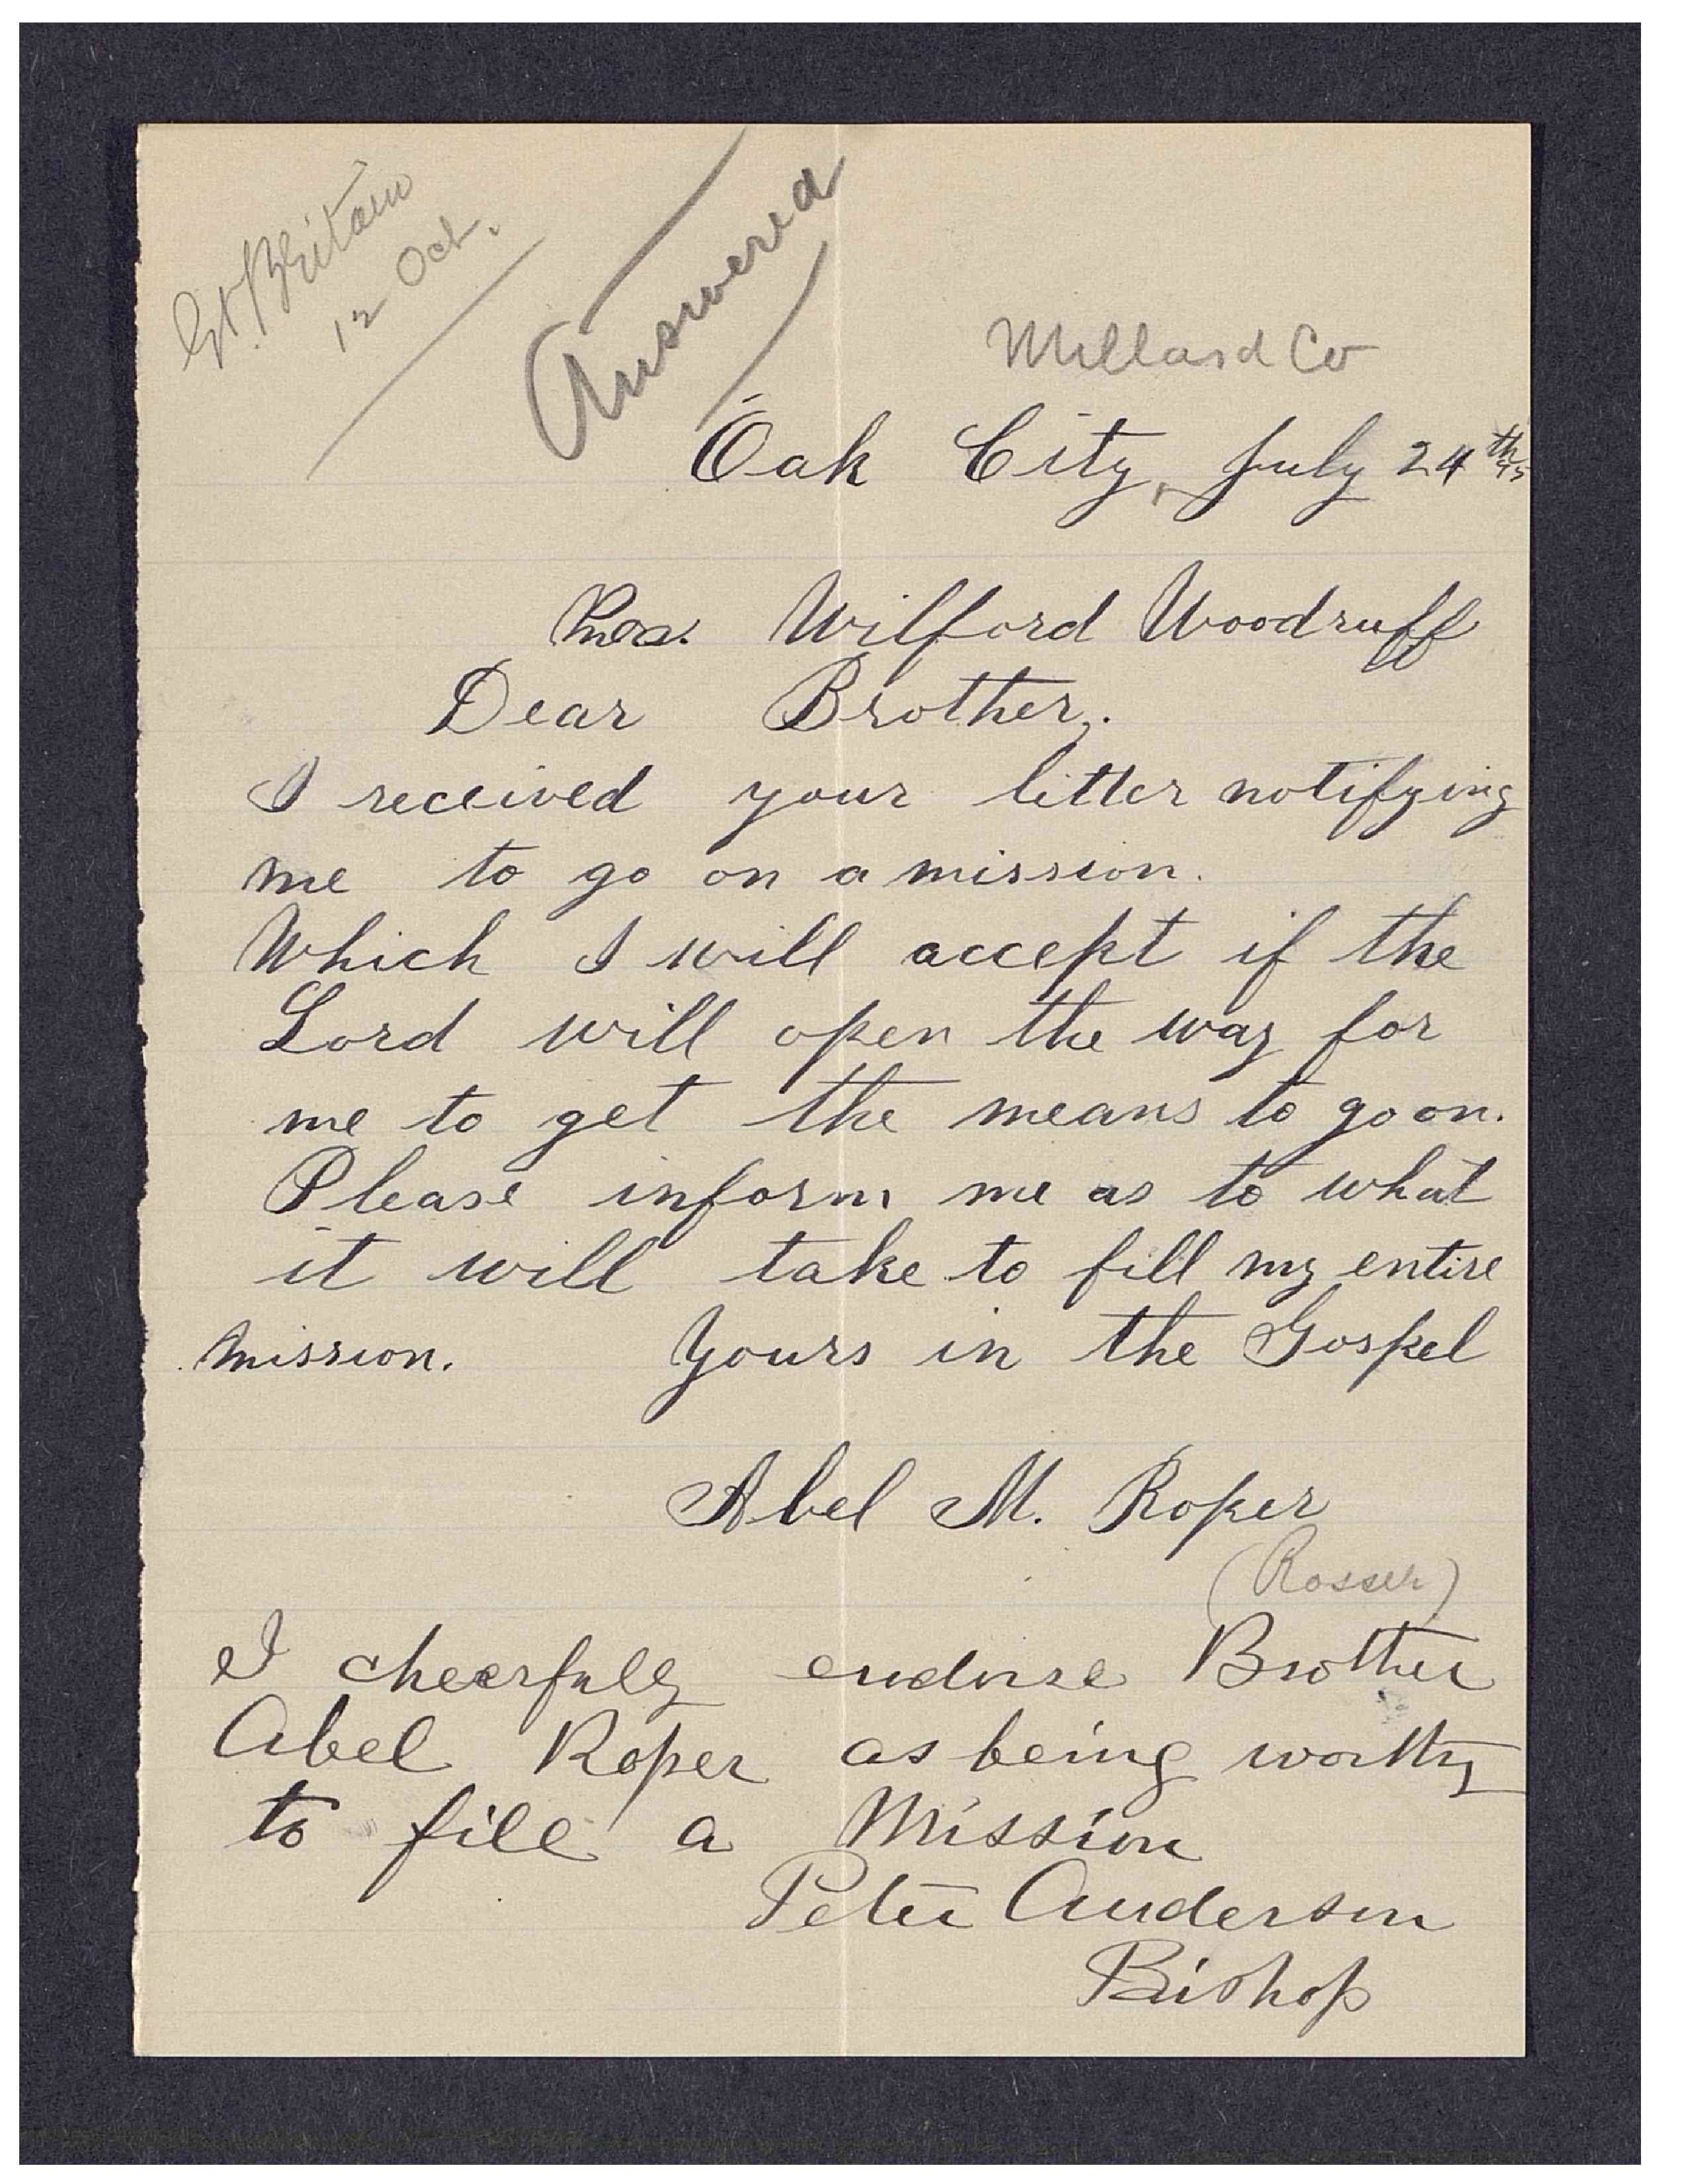 Gt. Britain
12 Oct.
Answered
Millard Co
Oak City, July 24th 95
Pres. Wilford Woodruff
Dear Brother,.
I received your letter notifying
me to go on a mission.
Which I will accept if the
Lord will open the way for
me to get the means to go on.
Please inform me as to what
it will take to fill my entire
mission. Yours in the Gospel
Abel M. Roper
(Rosser)
I cheerfully endorse Brother
Abel Roper as being worthy
to fill a Mission
Peter Anderson
Bishop